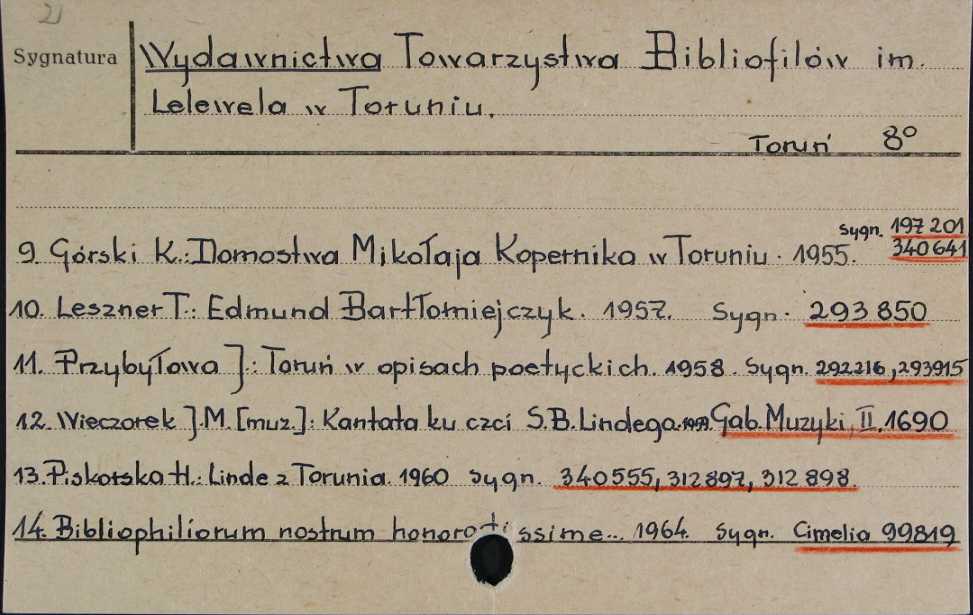 2)
Sygnatura
Wydawnictwa Towarzystwa Bibliofilów im.
Lelewela w Toruniu.
Toruń 8°
Sygn. 197 201
9. Górski K.: Domostwa Mikołaja Kopernika w Toruniu. 1955. 340 641
10. Leszner T.: Edmund Bartłomiejczyk. 1957. Sygn. 293 850
11. Przybyłowa J.: Toruń w opisach poetyckich. 1958. Sygn. 292216, 293915
12. Wieczorek J.M. [muz.]: Kantata ku czci S.B. Lindego. 1959. Gab. Muzyki, II. 1690
13. Piskorska H.: Linde z Torunia. 1960 Sygn. 340555, 312897, 312 898.
14. Bibliophiliorum nostrum honoro ssime... 1964. Sygn. Cimelia 99819